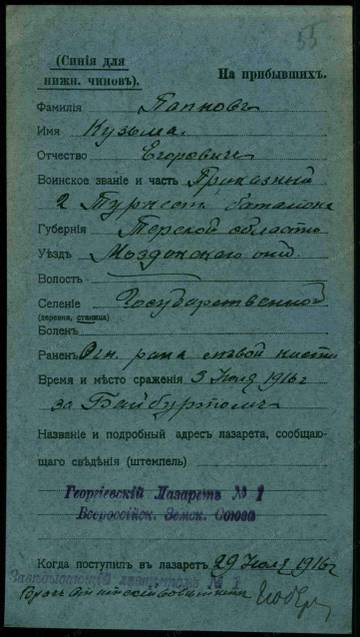 55
(Синія для нижн. чиновъ).
На прибывшихъ.
Фамилія Папковъ
Имя Кузьма.
Отчество Егоровичъ
Воинское званіе и часть Приказный
2 Туркест. баталіона
Губернія Терской области
Уѣздъ Моздокскаго отд.
Волость
Селеніе Государственной
(деревня, станица)
Боленъ
Раненъ Огн. рана лѣвой кисти
Время и мѣсто сраженія 3 Іюля 1916 г
за Байбуртомъ
Названіе и подробный адресъ лазарета, сообщаю-
щаго свѣдѣнія (штемпель)
Георгіевскій Лазаретъ № 1
Всероссійск. Земск. Союза
Когда поступилъ въ лазаретъ 29 Іюля 1916 г
Завѣдывающій лазаретомъ № 1